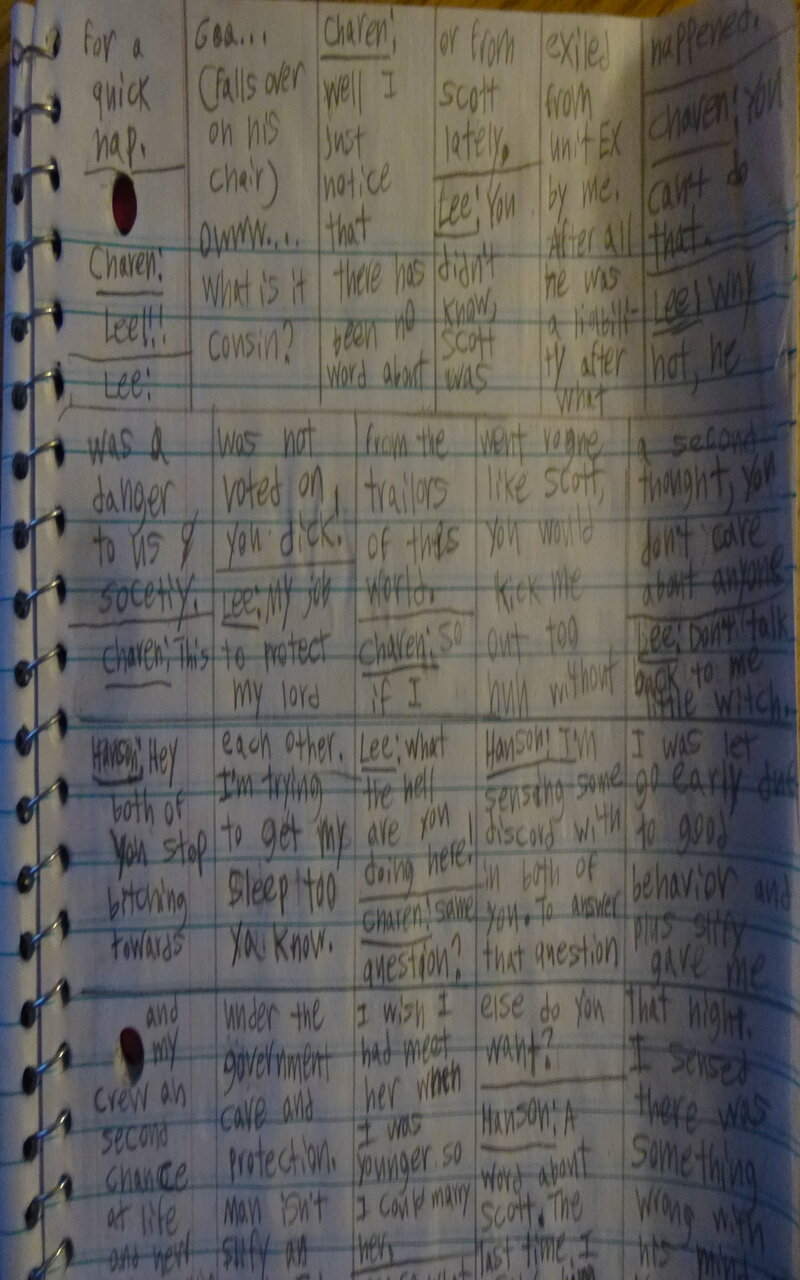 for a
quick
nap.
Charen:
Lee!!!
Lee:
Goa...
(falls over
on his
chair)
Owww....
What is it
cousin?
Charen:
well I
Just
notice
that
there has
been no
word about
or from
scott
lately.
Lee: You
didn't
know,
scott
was
exiled
from
unit EX
by me.
After all
he was
a liabilit-
ty after
what
happened.
Charen: You
can't do
that.
Lee: Why
not, he
was a
danger
to us &
socetiy.
Charen: This
was not
voted on,
you dick.
Lee: My job
to protect
my lord
from the
trailors
of this
world.
Charen: So
if I
went rogne
like scott,
you would
kick me
out too
huh without
a second
thought, you
don't care
about anyone
Lee: Don't talk
back to me
little witch.
Hanson: Hey
both of
you stop
bitching
towards
each other.
I'm trying
to get my
sleep too
ya know.
Lee: what
the hell
are you
doing here!
Charen: same
question?
Hanson: I'm
sensing some
discord with
in both of
you. To answer
that question
I was let
go early due
to good
behavior and
plus slify
gave me
and
my
crew an
second
chance
at life
and new
under the
government
care and
protection.
Man isn't
slify an
I wish I
had meet
her when
I was
younger so
I could marry
her.
else do you
want?
Hanson: A
word about
scott. The
last time I
that night.
I sensed
there was
something
wrong with
his mind